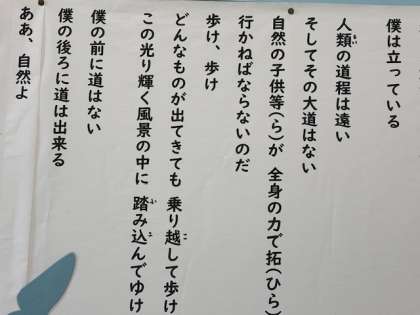 僕は立っている
人類の道程は遠い
そしてその大道はない
自然の子供等(ら)が 全身の力で拓(ひら)
行かねばならないのだ
歩け、歩け
どんなものが出てきても 乗り越して歩け
この光り輝く風景の中に 踏み込んでゆけ
僕の前に道はない
僕の後ろに道は出来る
ああ、自然よ